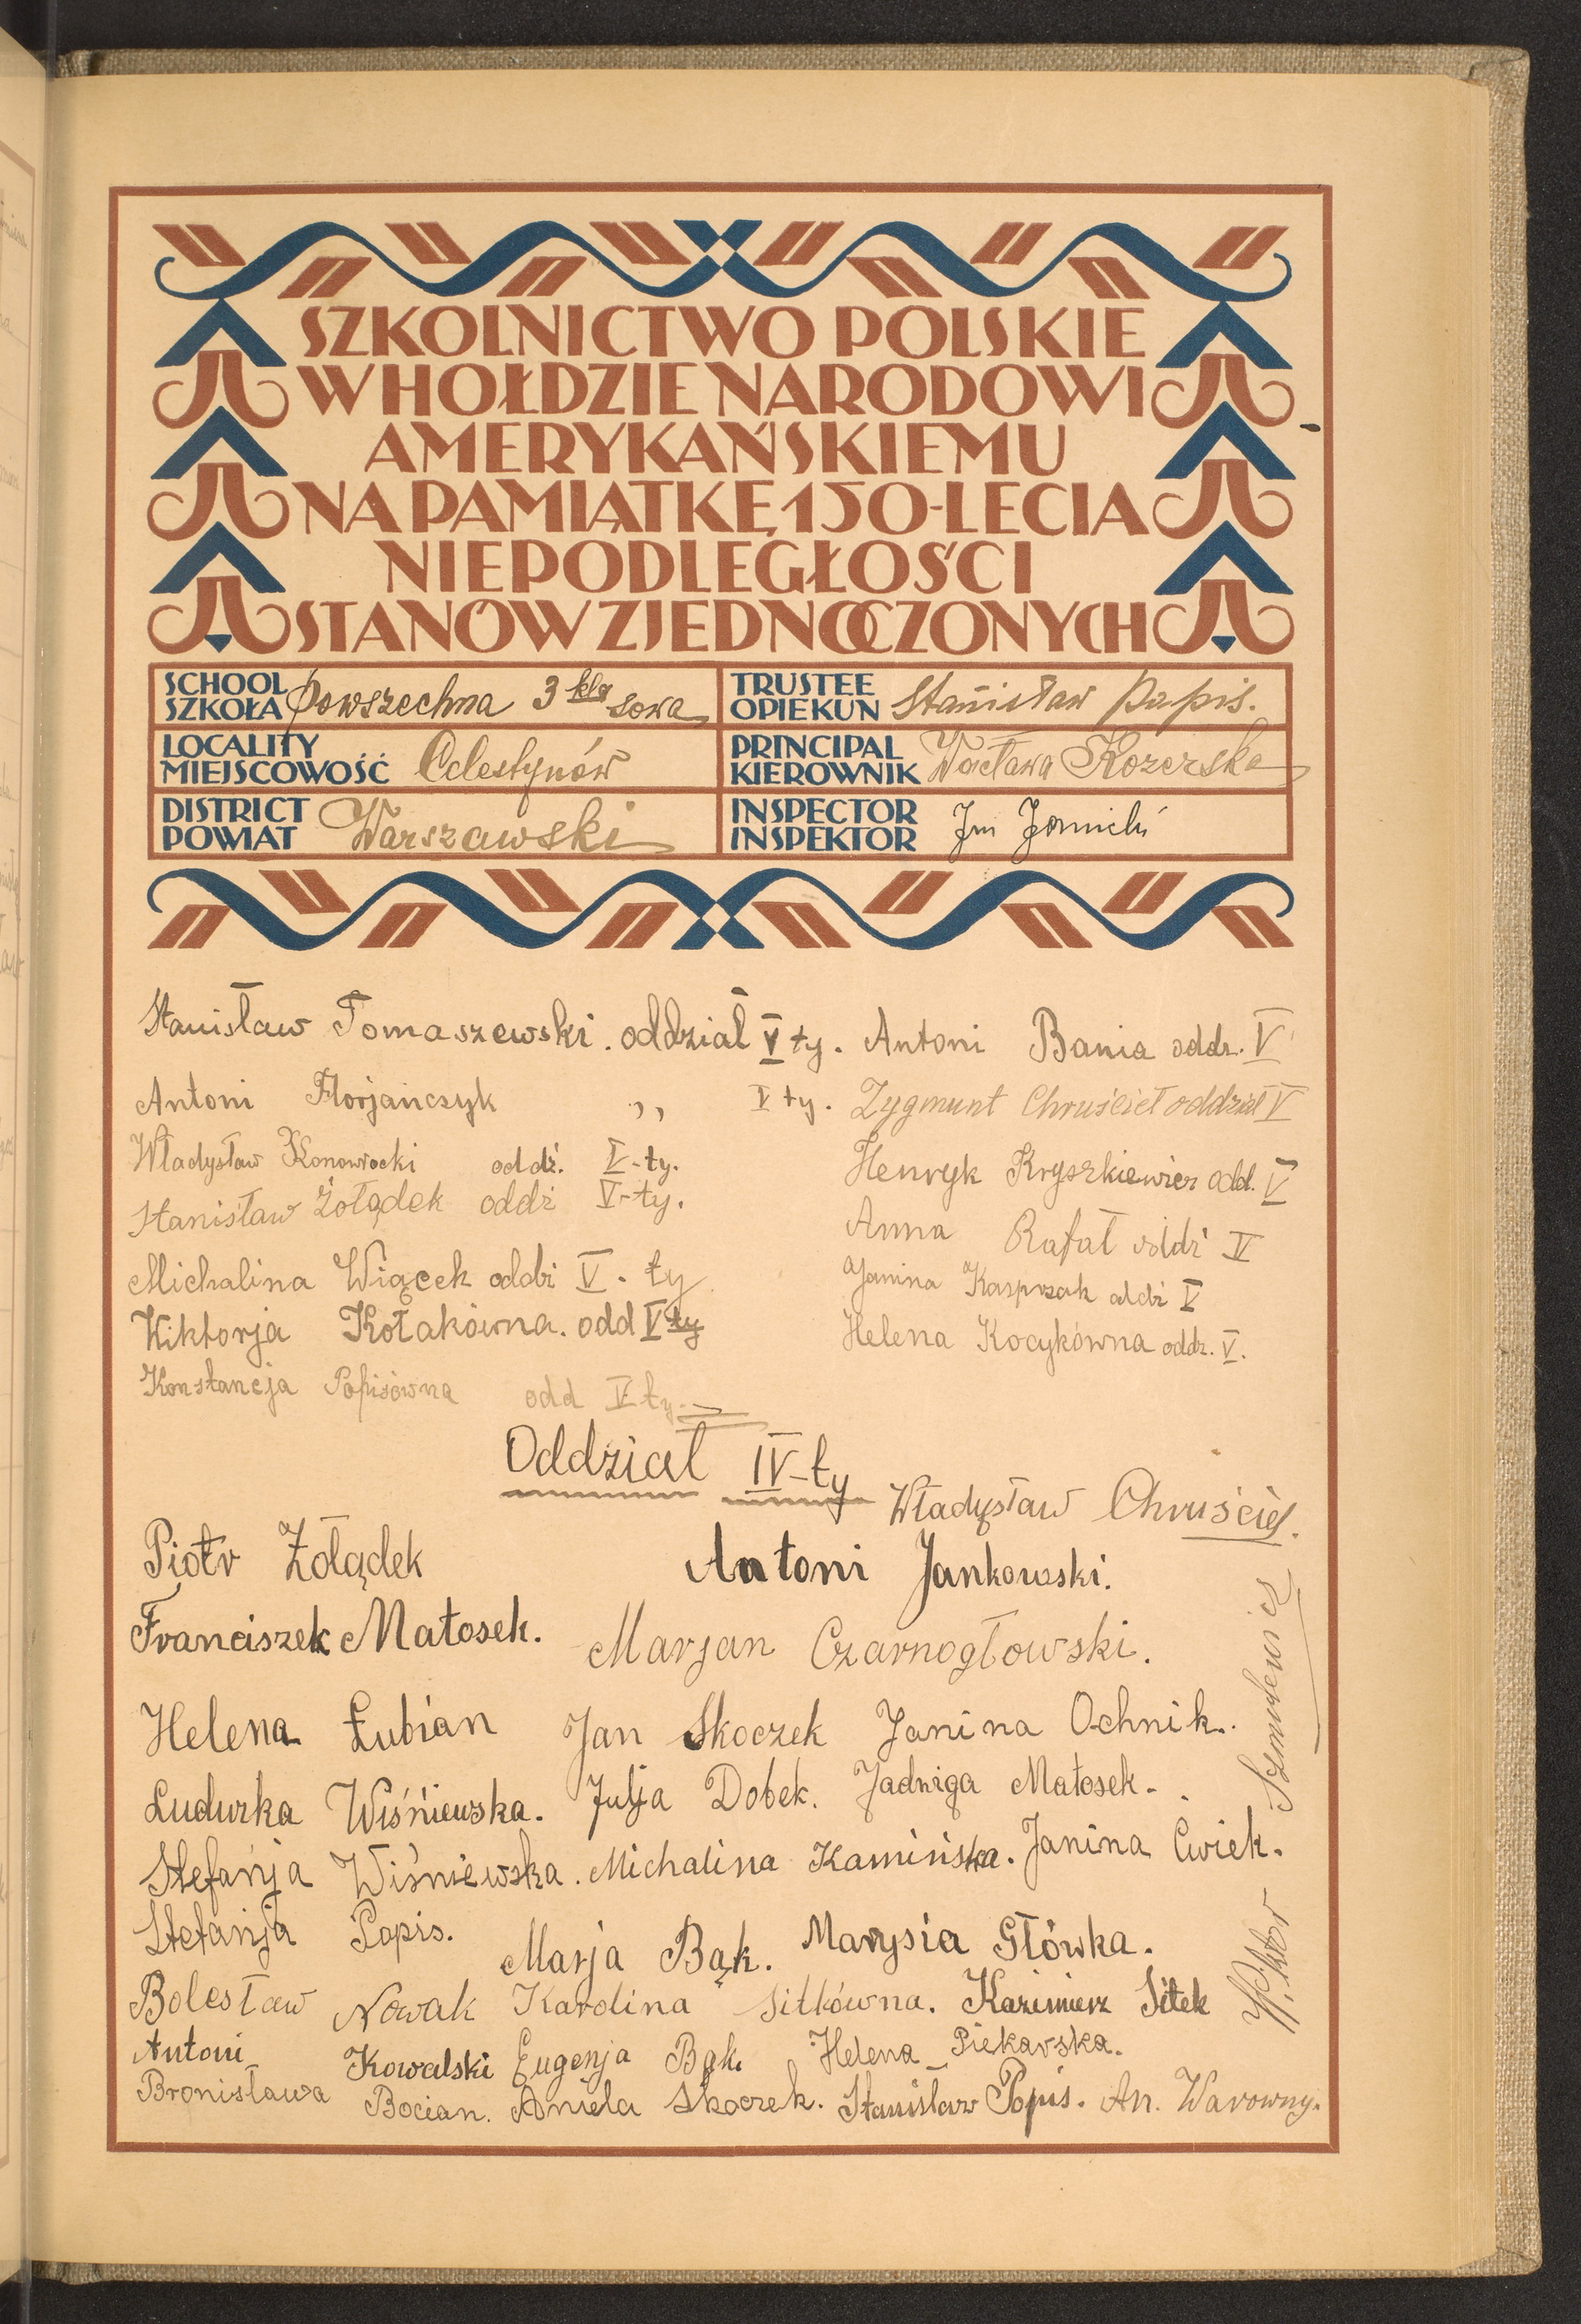 SZKOLNICTWO POLSKIE
W HOŁDZIE NARODOWI
AMERYKAŃSKIEMU
NA PAMIĄTKĘ 150-LECIA
NIEPODLEGŁOŚCI
STANÓW ZJEDNOCZONYCH
SCHOOL
SZKOŁA Powszechna 3 klasowa
TRUSTEE
OPIEKUN Stanisław Papis.
LOCALITY
MIEJSCOWOŚĆ Celestynów
PRINCIPAL
KIEROWNIK Wacława Kozerska
DISTRICT
POWIAT Warszawski
INSPECTOR
INSPEKTOR
Stanisław Tomaszewski. oddział V ty. Antoni Bania oddz. V
Antoni Florjańczyk ,, V ty. Zygmunt Chruściel oddział V
Władysław Konowrocki oddź. V-ty. Henryk Kryszkiewicz odd. V
Stanisław Żołądek oddz V-ty. Anna Rafał oddz V
Michalina Wiącek oddz V. ty Janina Kasprzak oddz V
Wiktorja Kołakówna. odd V ty Helena Kocykówna oddz. V.
Konstancja Papisówna odd V ty.
Oddział IV-ty
Władysław Chruściel.
Piotr Żołądek Antoni Jankowski.
Franciszek Matosek. Marjan Czarnogłowski.
Helena Łubian Jan Skoczek Janina Ochnik.
Ludwika Wiśniewska. Julja Dobek. Jadwiga Matosek.
Stefanja Wiśniewska. Michalina Kamińska. Janina Cwiek.
Stefanja Papis. Marja Bąk. Marysia Główka.
Bolesław Nowak Karolina Sitkówna. Kazimierz Sitek
Antoni Kowalski Eugenja Bąk. Helena Piekarska.
Bronisława Bocian. Aniela Skoczek. Stanisław Papis. An. Warowny.
Wiktor Szmulewicz